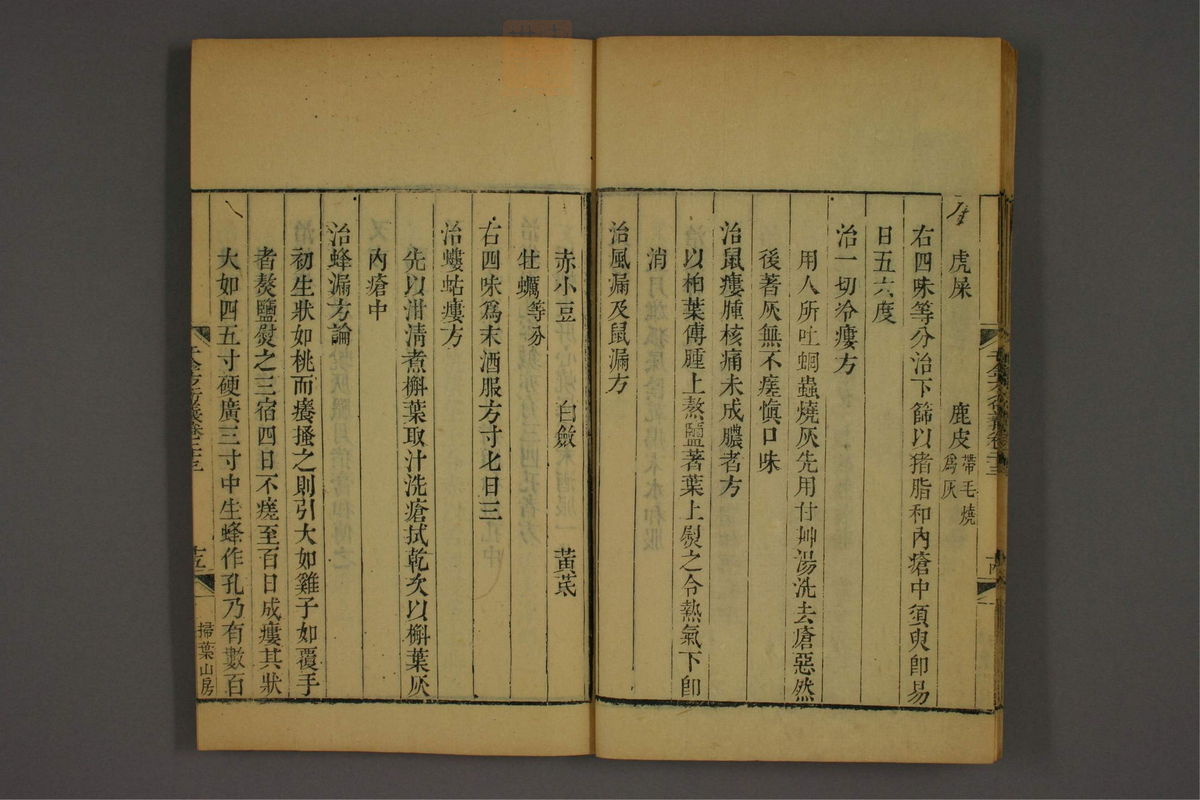 虎屎 鹿皮帶毛燒爲灰
右四味等分治下篩以猪脂和內瘡中須臾卽易
日五六度
治一切冷瘻方
用人所吐蛔蟲燒灰先用甘艸湯洗去瘡惡然
後著灰無不瘥愼口味
治鼠瘻腫核痛未成膿者方
以柏葉傅腫上熬鹽著葉上熨之令熱氣下卽
消
治風漏及鼠漏方
赤小豆 白斂 黃芪
牡蠣等分
右四味爲末酒服方寸匕日三
治螻蛄瘻方
先以泔淸煮槲葉取汁洗瘡拭乾次以槲葉灰
內瘡中
治蜂漏方論
初生狀如桃而癢搔之則引大如雞子如覆手
者熬鹽熨之三宿四日不瘥至百日成瘻其狀
大如四五寸硬廣三寸中生蜂作孔乃有數百
十五
掃葉山房